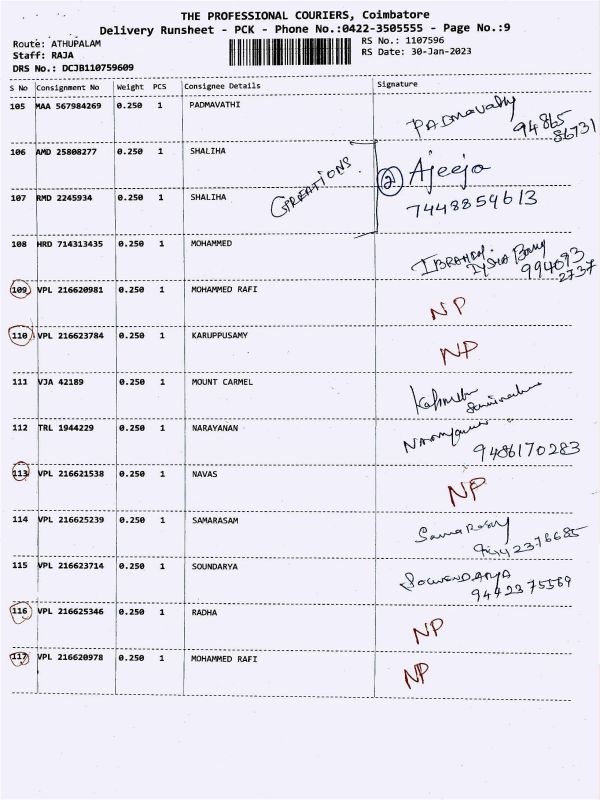 THE PROFESSIONAL COURIERS, Coimbatore
Delivery Runsheet - PCK - Phone No.:0422-3505555 - Page No.:9
Route: ATHUPALAM
RS No.: 1107596
Staff: RAJA
RS Date: 30-Jan-2023
DRS No.: DCJB110759609
S No Consignment No Weight PCS Consignee Details Signature
105 MAA 567984269 0.250 1 PADMAVATHI
PADMavathy
94865
86731
106 AMD 25808277 0.250 1 SHALIHA
② Ajeeja
107 RMD 2245934 0.250 1 SHALIHA
7448859613
108 HRD 714313435 0.250 1 MOHAMMED
IBRAHIM.
994093
2737
109 VPL 216620981 0.250 1 MOHAMMED RAFI
NP
110 VPL 216623784 0.250 1 KARUPPUSAMY
NP
111 VJA 42189 0.250 1 MOUNT CARMEL
112 TRL 1944229 0.250 1 NARAYANAN
9486170283
113 VPL 216621538 0.250 1 NAVAS
NP
114 VPL 216625239 0.250 1 SAMARASAM
9442376685
115 VPL 216623714 0.250 1 SOUNDARYA
SOUNDARYA
9442375569
116 VPL 216625346 0.250 1 RADHA
NP
117 VPL 216620978 0.250 1 MOHAMMED RAFI
NP